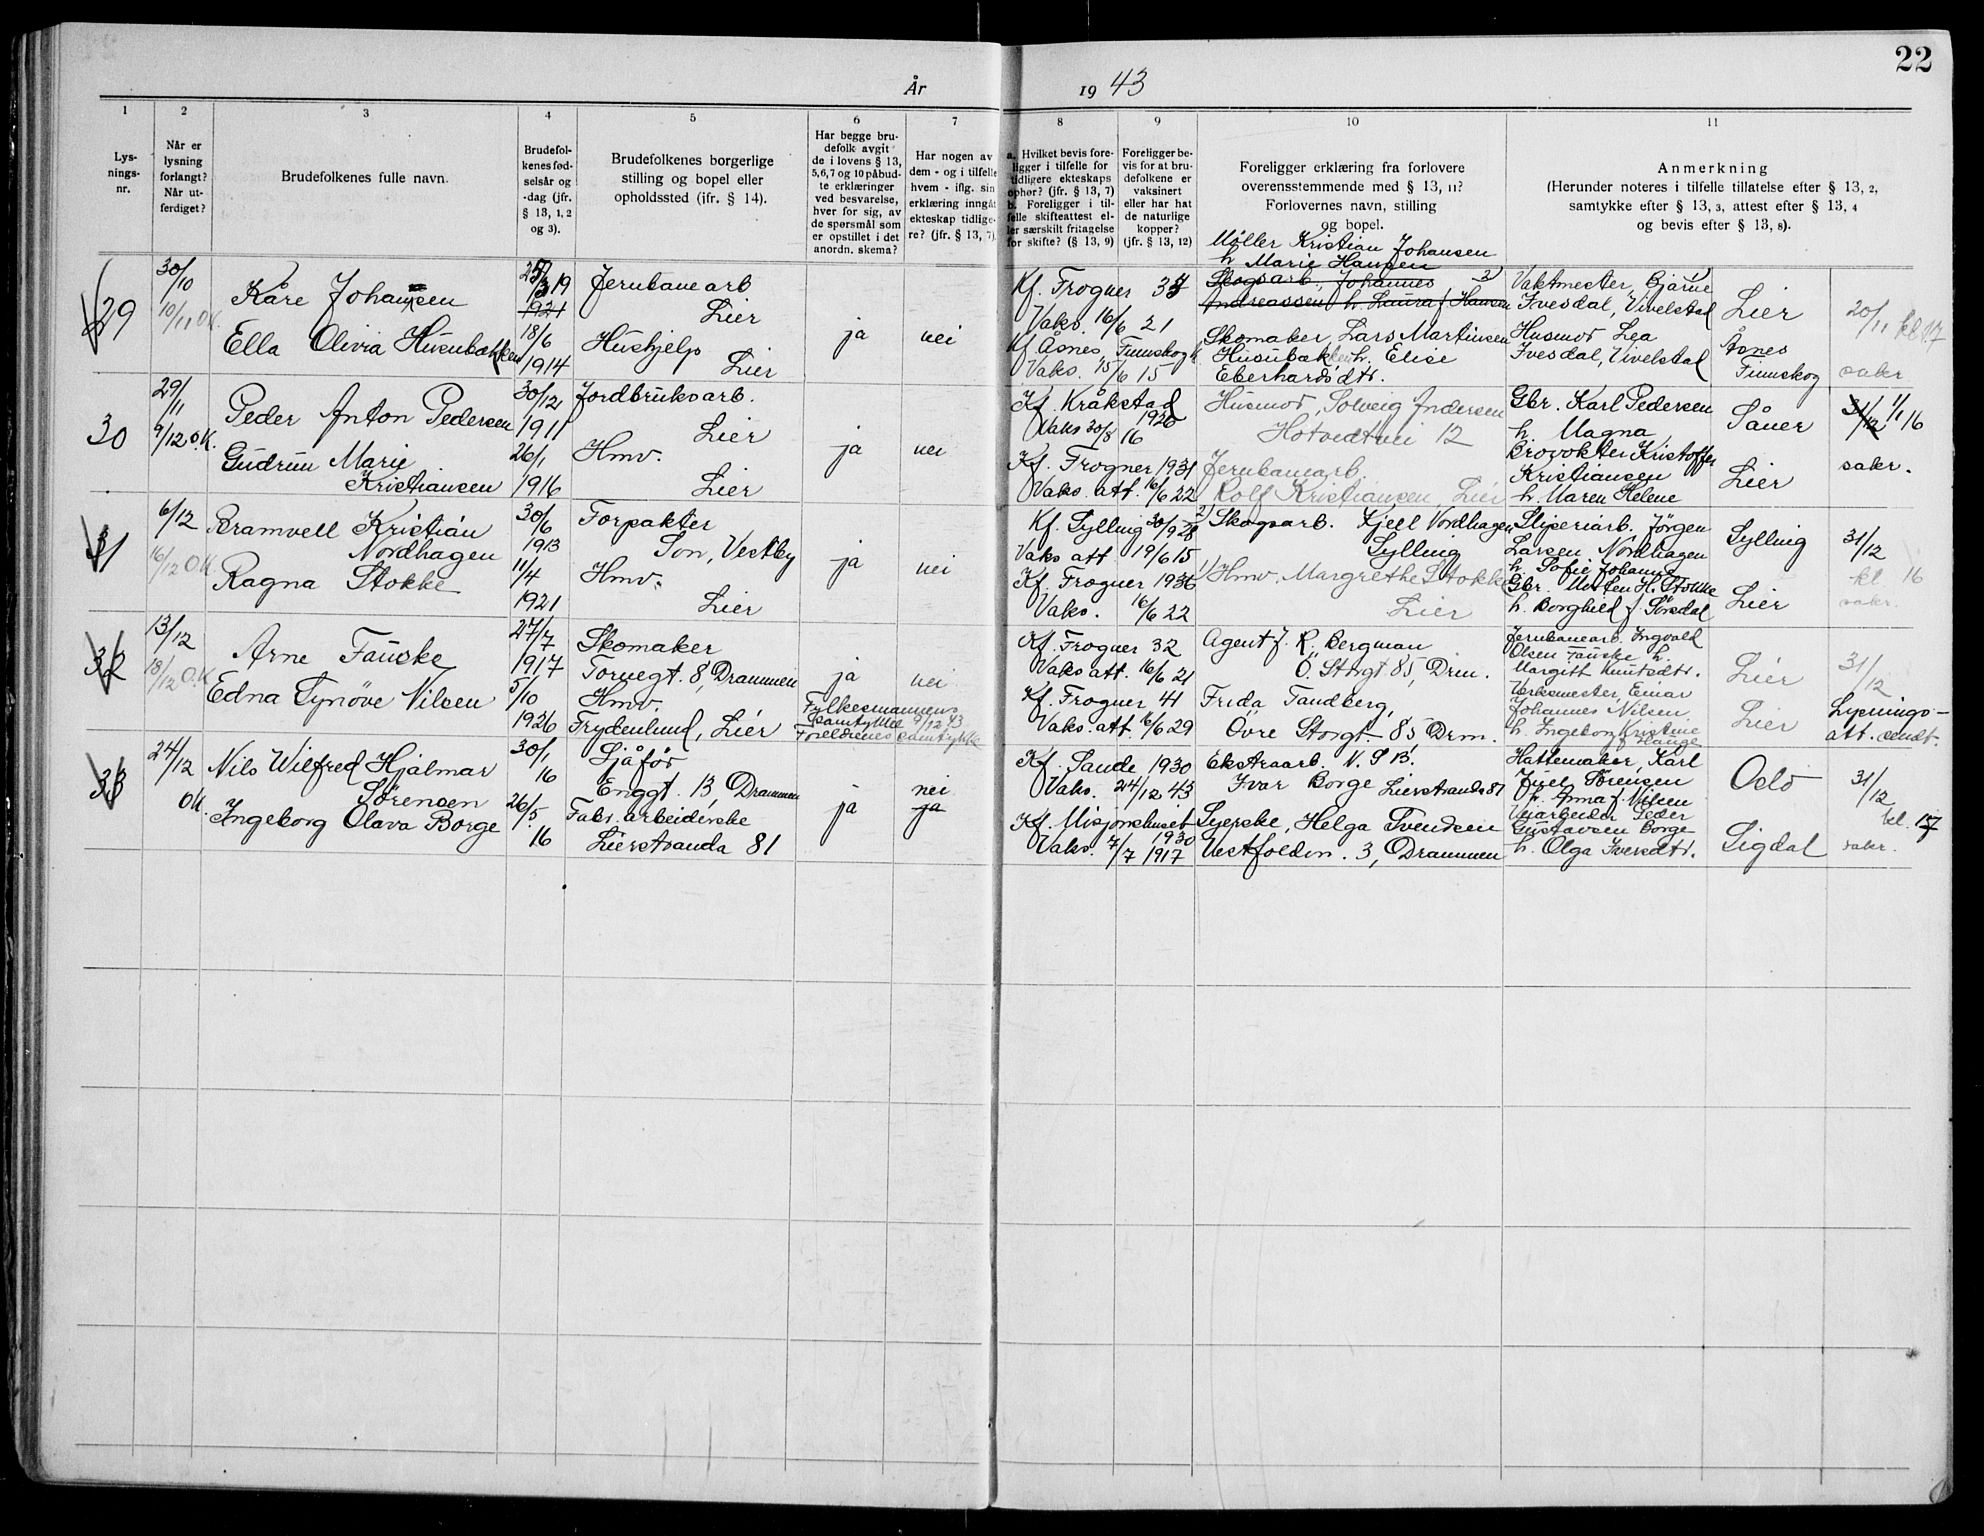 22
År 1943
1 2 3 4 5 6 7 8 9 10 11
Lys-
nings-
nr.
Når er
lysning
forlangt?
Når ut-
ferdiget?
Brudefolkenes fulle navn.
Brudefol-
kenes fød-
selsår og
-dag (jfr.
§ 13, 1, 2
og 3).
Brudefolkenes borgerlige
stilling og bopel eller
opholdssted (ifr. § 14).
Har begge bru-
defolk avgit
de i lovens § 13,
5,6,7 og 10 påbud-
te erklæringer
ved besvarelse,
hver for sig, av
de spørsmål som
er opstillet i det
anordn. skema?
Har nogen av
dem - og i tilfelle
hvem - iflg. sin
erklæring inngåt
ekteskap tidlige-
re? (jfr. § 13, 7).
a. Hvilket bevis fore-
ligger i tilfelle for
tidligere ekteskaps
ophør? (jfr. § 13, 7)
b. Foreligger i til-
felle skifteattest el-
ler særskilt fritagelse
for skifte? (§ 13, 9)
Foreligger be-
vis for at bru-
defolkene er
vaksinert
eller har hat
de naturlige
kopper?
(jfr. § 13, 12)
Foreligger erklæring fra forlovere
overensstemmende med § 13, 11?
Forlovernes navn, stilling
og bopel.
Anmerkning
(Herunder noteres i tilfelle tillatelse efter § 13, 2,
samtykke efter § 13, 3, attest efter § 13, 4
og bevis efter § 13, 8).
29
30/10
10/11 O.K.
Kåre Johansen
Ella Olivia Husubækken
19
1921
18/6
1914
Jernbanearb
Lier
Hushjelp
Lier
ja
nei
Kf. Frogner
Vaks. 16/6 21
Kf Åsnes, Finnskog
Vaks. 15/6 15
Møller Kristian Johansen
h Marie Hansen
Skogsarb., Johannes
Andreassen h. Laura f Hansen
Skomaker Lars Martinsen
Husubækken h. Elise
Eberhardsdtr.
Vaktmester Bjarne
Ivesdal, Vivelstad
Husmor Lea
Ivesdal, Vivelstad
Lier
Åsnes
Finnskog
20/11 kl 17
sakr
30
29/11
9/12 O.K.
Peder Anton Pedersen
Gudrun Marie
Kristiansen
30/12
1911
26/1
1916
Jordbruksarb.
Lier
Hmv.
Lier
ja
nei
Kf. Kråkstad
1926
Vaks 30/8 16
Kf. Frogner 1931
Vaks. att. 16/6 22
Husmor, Solveig Andersen
Hotvedtvei 12
Jernbanearb.
Rolf Kristiansen, Lier
Gbr. Karl Pedersen
h. Magna
Brovokter Kristoffer
Kristiansen
h. Maren Helene
Såner
Lier
31/12 1/1 16
sakr.
31
6/12
16/12 O.K
Bramvell Kristian
Nordhagen
Ragna Stokke
30/6
1913
11/4
1921
Forpakter
Son, Vestby
Hmv.
Lier
ja
nei
Kf. Sylling 30/9 28
Vaks att 19/6 15
Kf. Frogner 1936
Vaks. 16/6 22
2) Skogsarb. Kjell Nordhagen
Sylling
1) Hmv. Margrethe Stokke
Lier
Sliperiarb. Jørgen
Larsen Nordhagen
h. Sofie Johanne
Gbr. Morten H. Stokke
h. Borghild f Sørsdal
Sylling
Lier
31/12
kl. 16
sakr.
32
13/12
18/12 O.K
Arne Fauske
Edna Synöve Nilsen
27/7
1917
5/10
1926
Skomaker
Tornegt. 8, Drammen
Hmv.
Frydenlund, Lier
ja
nei
Fylkesmannens
samtykke 9/12 43
Foreldrenes samtykke
Kf. Frogner 32
Vaks. att. 16/6 21
Kf. Frogner 41
Vaks. att. 16/6 29
Agent f. R. Bergman
Ö. Storgt 85, Drm.
Frida Tandberg,
Övre Storgt 85 Drm.
Jernbanearb. Ingvald
Olsen Fauske h.
Margitt Knutsdtr.
Verksmester Einar
Johannes Nilsen
h. Ingeborg Kristine
f Hauge
Lier
Lier
31/12
Lysnings-
att. sendt.
33
24/12
OK.
Nils Wilfred Hjalmar
Sörensen
Ingeborg Olava Borge
30/1
16
26/5
16
Sjåfør
Enggt. 13, Drammen
Fabr. arbeiderske
Lierstranda 81
ja
nei
ja
Kf. Sande 1930
Vaks. 24/12 43
Kf. Misjonshuset
1930
Vaks. 7/7 1917
Ekstraarb. N.S.B.
Ivar Borge Lierstranda 81
Syerske, Helga Svendsen
Vestfoldn. 3, Drammen
Hattemaker, Karl
Juel Sørensen
h. Anna f. Nilsen
Veiarbeider Peder
Gustavsen Borge
h. Olga Iversdtr.
Oslo
Sigdal
31/12
kl. 17
sakr.